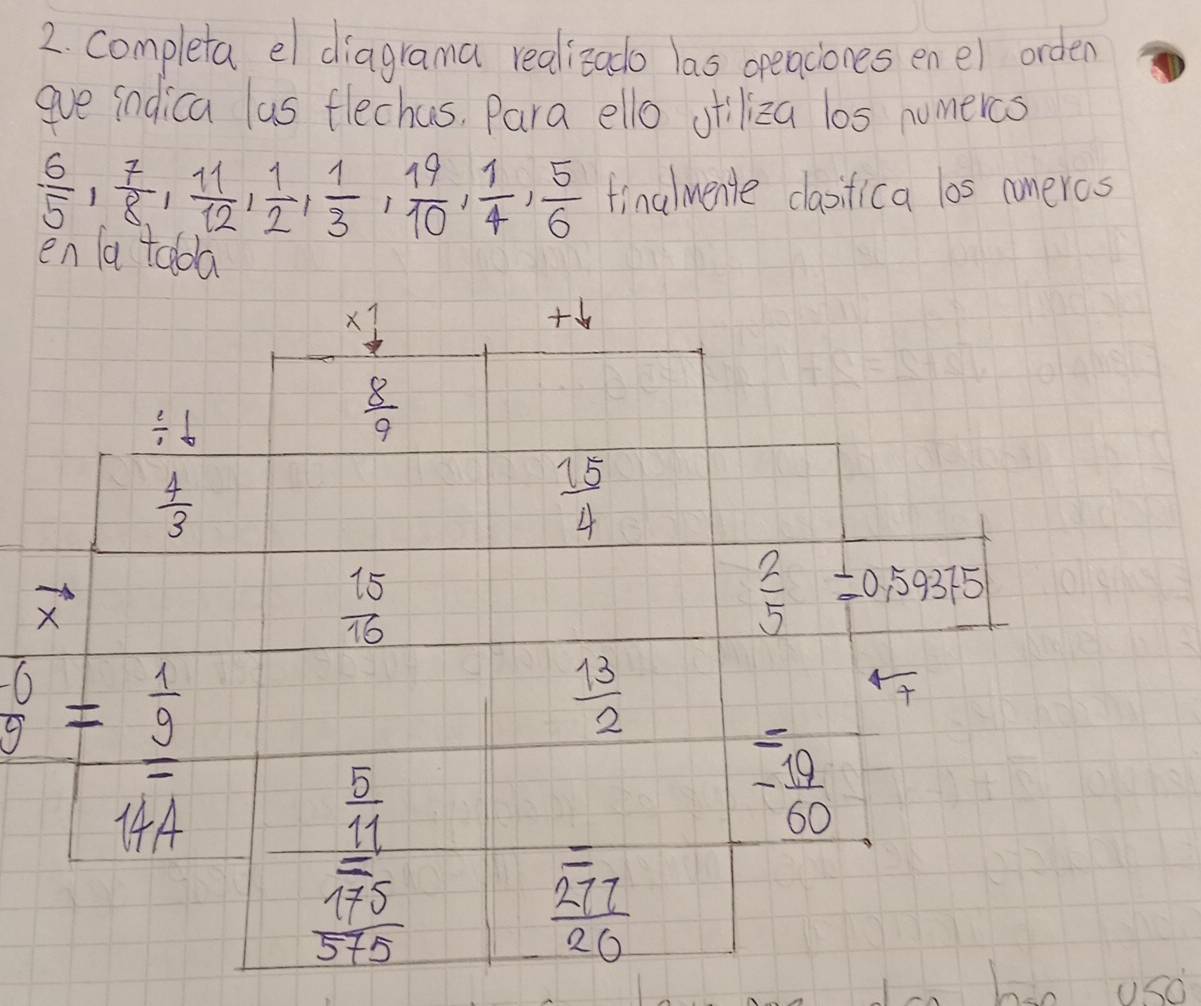 2. Completa el diagrama realizado las opeaciones en el orden
que indica las flechas. Para ello utiliza los numeros
6/5, 7/8, 11/12, 1/2, 1/3, 19/10, 1/4, 5/6 finalmente clasifica los numeros
en la tabla
x↓ +↓
8/9
÷↓
4/3 15/4
→x 15/16 2/5 =0,59375
-6/9 = 1/9 13/2 ←+
= 14A 5/11 = -19/60
= 175/575 = 277/20
uso